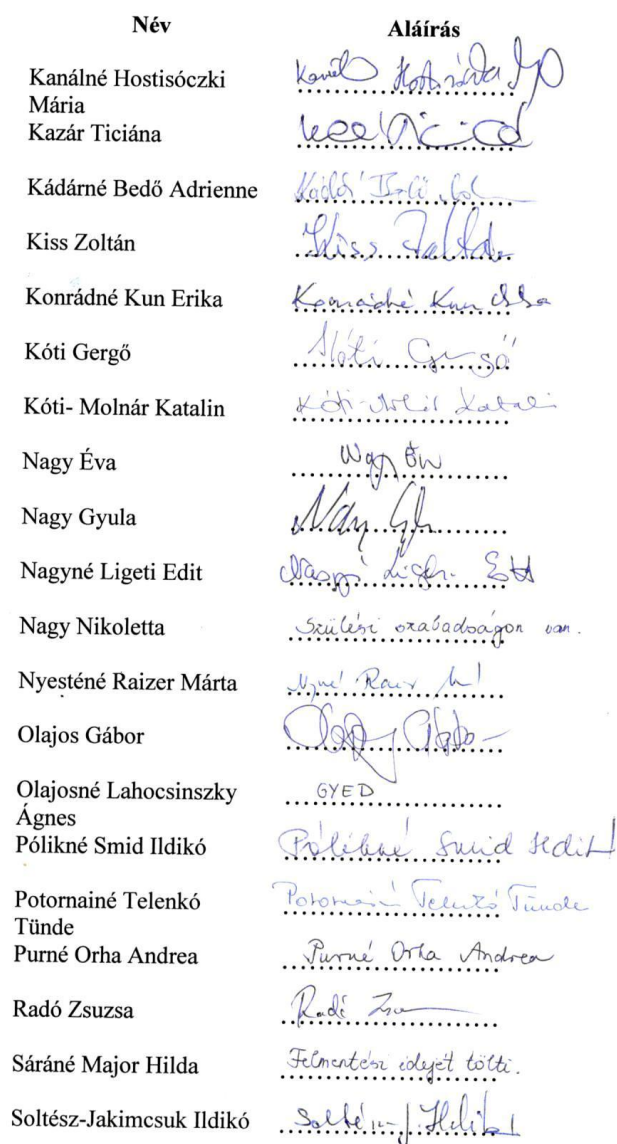 Név Aláírás
Kanálné Hostisóczki
Mária
Kazár Ticiána
Kádárné Bedő Adrienne
Kiss Zoltán Kiss Zoltán
Konrádné Kun Erika Konrádné Kun
Kóti Gergő Kóti Gergő
Kóti- Molnár Katalin Kóti-Molnár Katalin
Nagy Éva Nagy Éva
Nagy Gyula Nagy
Nagyné Ligeti Edit
Nagy Nikoletta Szülési szabadságon van.
Nyesténé Raizer Márta
Olajos Gábor
Olajosné Lahocsinszky GYED
Ágnes
Pólikné Smid Ildikó Pólikné Smid Ildikó
Potornainé Telenkó Potornainé Telenkó Tünde
Tünde
Purné Orha Andrea Purné Orha Andrea
Radó Zsuzsa Radó
Sáráné Major Hilda Felmentési idejét tölti.
Soltész-Jakimcsuk Ildikó